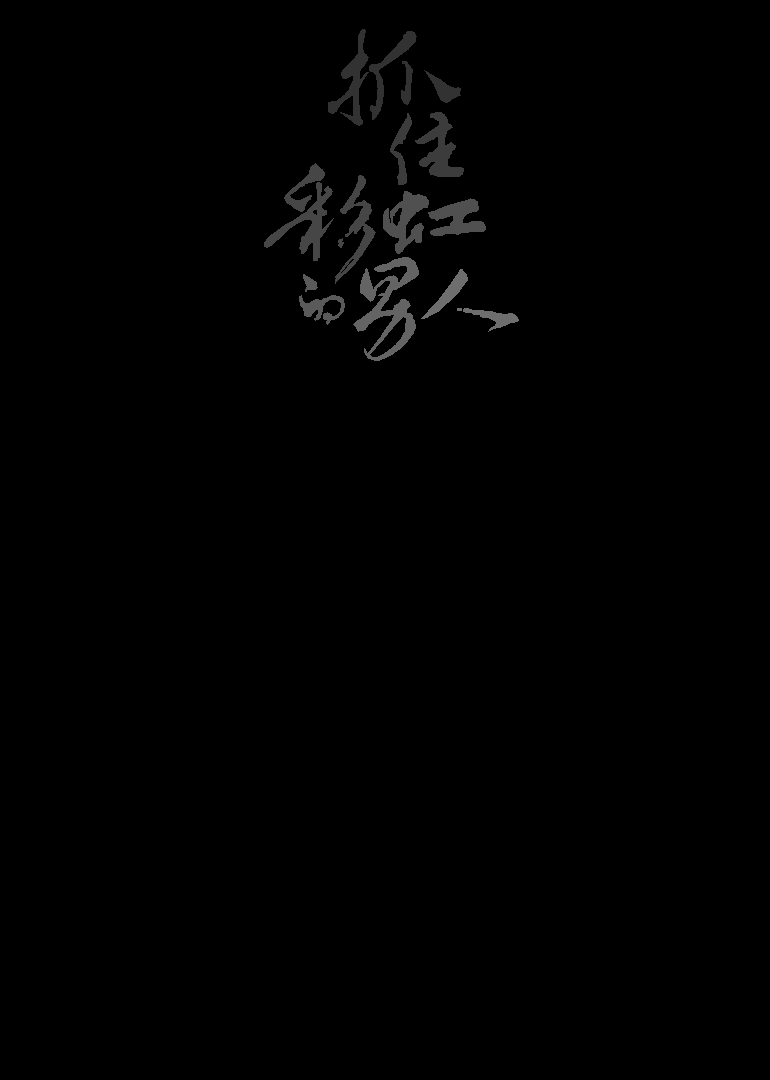 抓
住
彩虹
的男人